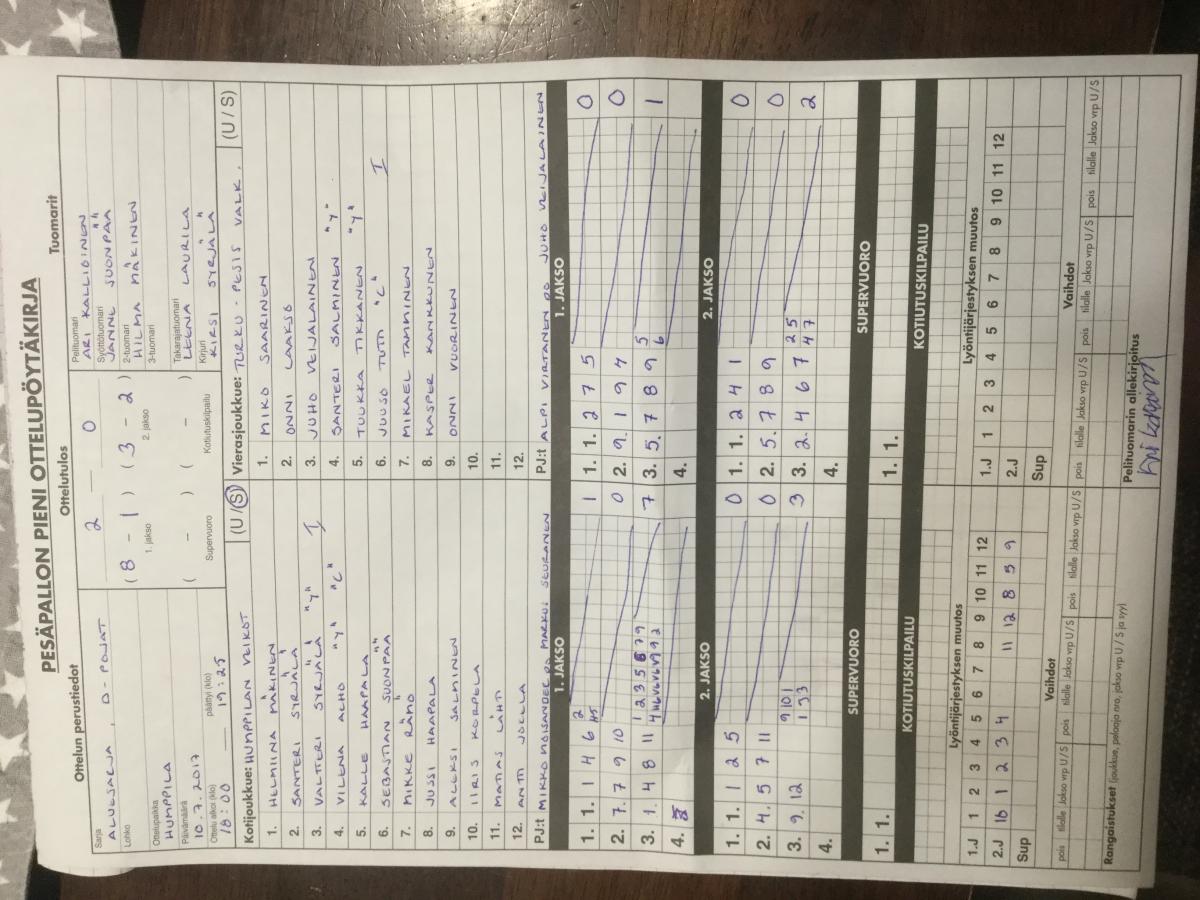 PESÄPALLON PIENI OTTELUPÖYTÄKIRJA
Ottelun perustiedot
Ottelutulos
Tuomarit
Sarja
ALUESARJA, D-POJAT
Lohko
Ottelupaikka
HUMPPILA
Päivämäärä
10.7.2017
Ottelu alkoi (klo)
päättyi (klo)
18:00 — 19:25
2 — 0
( 8 - 1 ) ( 3 - 2 )
1. jakso
2. jakso
( - ) ( - )
Supervuoro
Kotiutuskilpailu
Pelituomari
ARI KALLIOINEN
Syöttötuomari
JANNE SUONPÄÄ
2-tuomari
HILMA MÄKINEN
3-tuomari
Takarajatuomari
LEENA LAURILA
Kirjuri
KIRSI SYRJÄLÄ
Kotijoukkue: HUMPPILAN VEIKOT (U / S)
1. HELMIINA MÄKINEN
2. SANTERI SYRJÄLÄ
3. VALTTERI SYRJÄLÄ "Y" I
4. VILENA ALHO "Y" "C"
5. KALLE HAAPALA
6. SEBASTIAN SUONPÄÄ
7. MIKKE RÄMÖ
8. JUSSI HAAPALA
9. ALEKSI SALMINEN
10. IIRIS KORPELA
11. MATIAS LÄHTI
12. ANTTI JOKELA
PJ:t MIKKO MOISANDER PJ MARKO SEURANEN
Vierasjoukkue: TURKU-PESIS VALK. (U / S)
1. MIKO SAARINEN
2. ONNI LAAKSO
3. JUHO VEIJALAINEN
4. SANTERI SALMINEN "Y"
5. TUUKKA TIKKANEN "Y"
6. JUUSO TUTI "C" I
7. MIKAEL TAMMINEN
8. KASPER KANKKUNEN
9. ONNI VUORINEN
10.
11.
12.
PJ:t ALPI VIRTANEN PJ JUHO VEIJALAINEN
1. JAKSO
1. JAKSO
1. 1. 1 4 6 2 1
45
2. 7. 7 9 10 0
3. 1. 4 8 11 7
4.
1. 1. 2 7 5 0
2. 9. 1 9 4 0
3. 5. 7 8 9 5 1
6
4.
2. JAKSO
2. JAKSO
1. 1. 1 2 5 0
2. 4. 5 7 11 0
3. 9. 12 9 10 1 3
1 3 3
4.
1. 1. 2 4 1 0
2. 5. 7 8 9 0
3. 2. 4 6 7 2 5 2
4 7
4.
SUPERVUORO
SUPERVUORO
1. 1.
1. 1.
KOTIUTUSKILPAILU
KOTIUTUSKILPAILU
Lyöntijärjestyksen muutos
1.J 1 2 3 4 5 6 7 8 9 10 11 12
2.J 1 2 3 4 11 12 8 5 9
Sup
Lyöntijärjestyksen muutos
1.J 1 2 3 4 5 6 7 8 9 10 11 12
2.J
Sup
Vaihdot
pois tilalle Jakso vrp U / S pois tilalle Jakso vrp U / S pois tilalle Jakso vrp U / S
Vaihdot
pois tilalle Jakso vrp U / S pois tilalle Jakso vrp U / S pois tilalle Jakso vrp U / S
Rangaistukset (joukkue, pelaaja nro, jakso vrp U / S ja syy)
Pelituomarin allekirjoitus